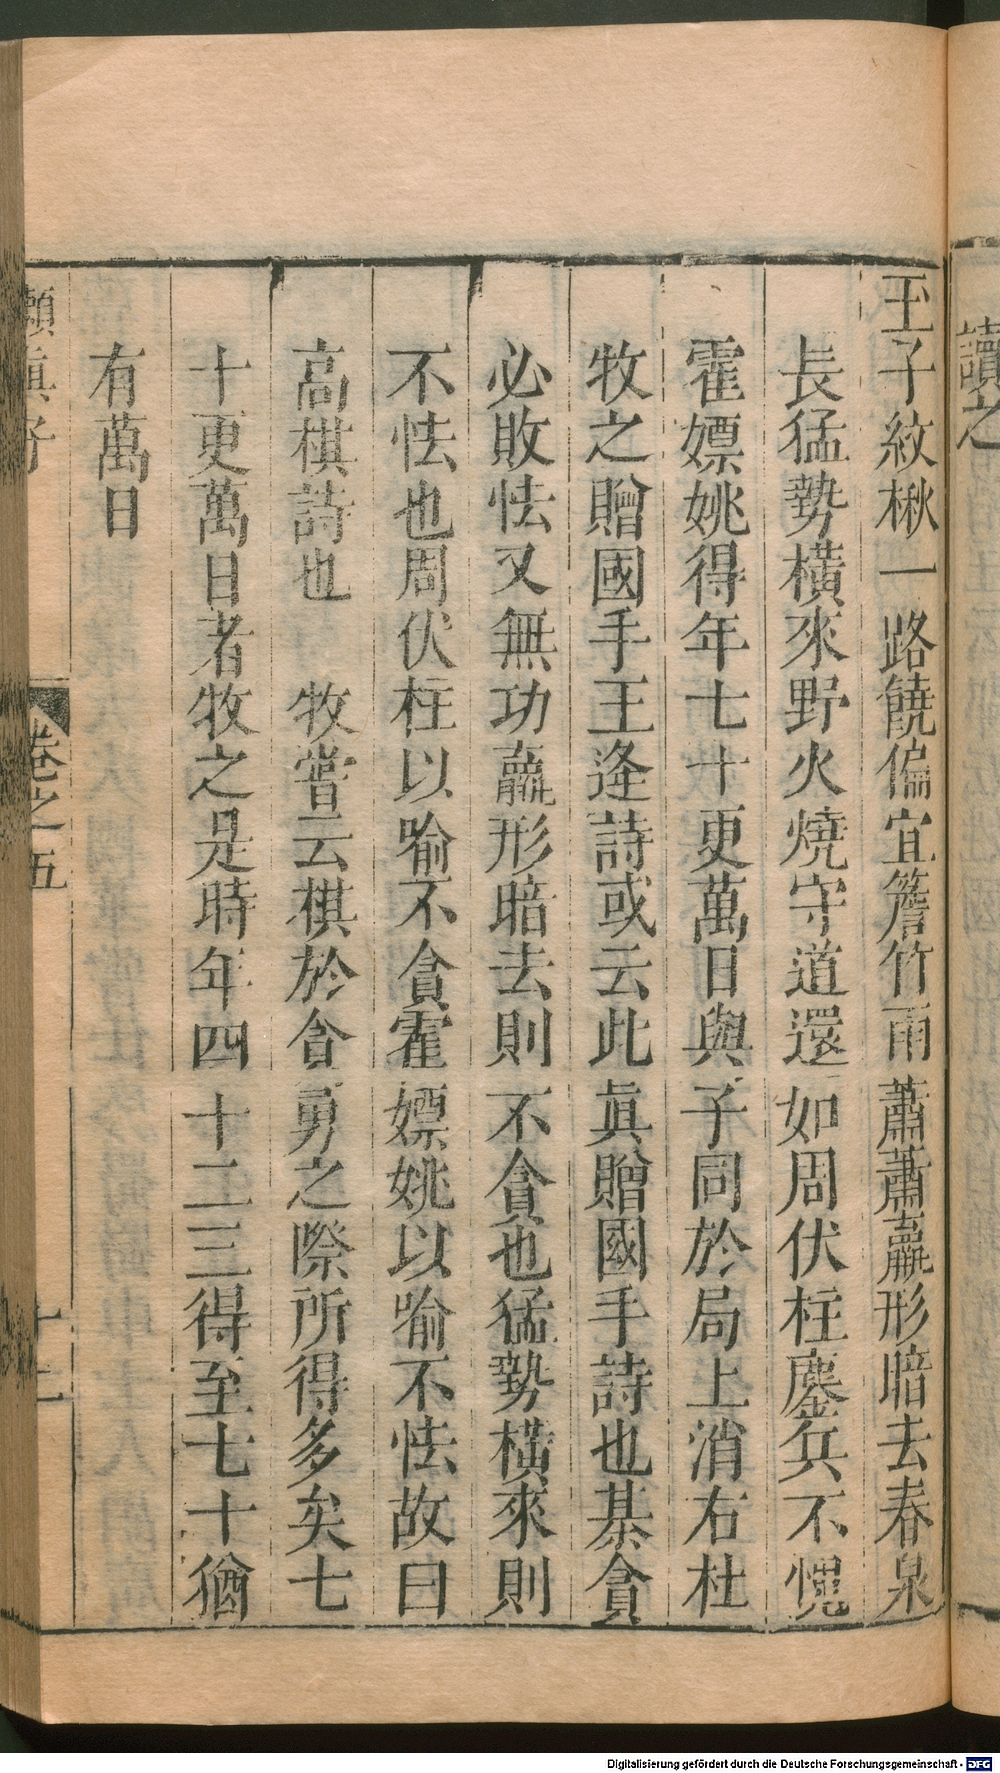 讀之
玉子紋楸一路饒偏宜簷竹雨蕭蕭羸形暗去春泉
長猛勢橫來野火燒守道還如周伏柱鏖兵不愧
霍嫖姚得年七十更萬日與子同於局上消右杜
牧之贈國手王逢詩或云此眞贈國手詩也棊貪
必敗怯又無功羸形暗去則不貪也猛勢橫來則
不怯也周伏柱以喻不貪霍嫖姚以喻不怯故曰
高棋詩也　牧嘗云棋於貪勇之際所得多矣七
十更萬日者牧之是時年四十二三得至七十猶
有萬日
嬾眞子
卷之五
十二
Digitalisierung gefördert durch die Deutsche Forschungsgemeinschaft - DFG